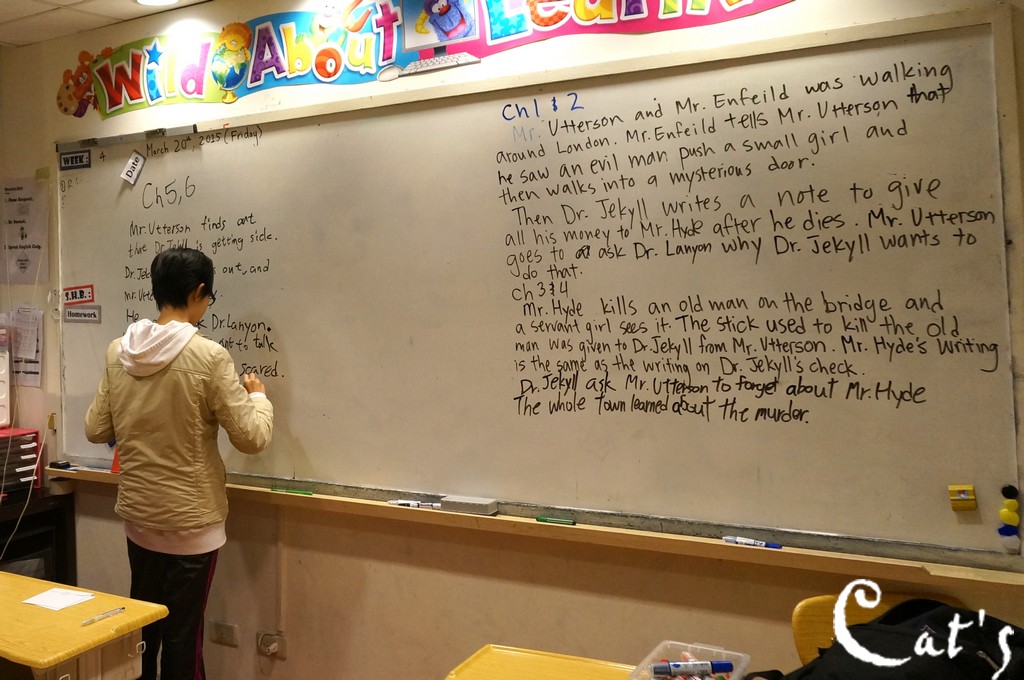 Wild About Learnin
WEEK:
4
Date
March 20th, 2015 (Friday)
Ch 5,6
Mr. Utterson finds out
that Dr. Jekll is getting sick.
out, and
He
Dr. Lanyon.
to talk
scared.
S.H.B.:
Homework
Ch 1 & 2
Mr. Utterson and Mr. Enfeild was walking
around London. Mr. Enfeild tells Mr. Utterson that
he saw an evil man push a small girl and
then walks into a mysterious door.
Then Dr. Jekyll writes a note to give
all his money to Mr. Hyde after he dies. Mr. Utterson
goes to ask Dr. Lanyon why Dr. Jekyll wants to
do that.
Ch 3 & 4
Mr. Hyde kills an old man on the bridge and
a servant girl sees it. The stick used to kill the old
man was given to Dr. Jekyll from Mr. Utterson. Mr. Hyde's writing
is the same as the writing on Dr. Jekyll's check.
Dr. Jekyll ask Mr. Utterson to forget about Mr. Hyde
The whole town learned about the murder.
Cat's